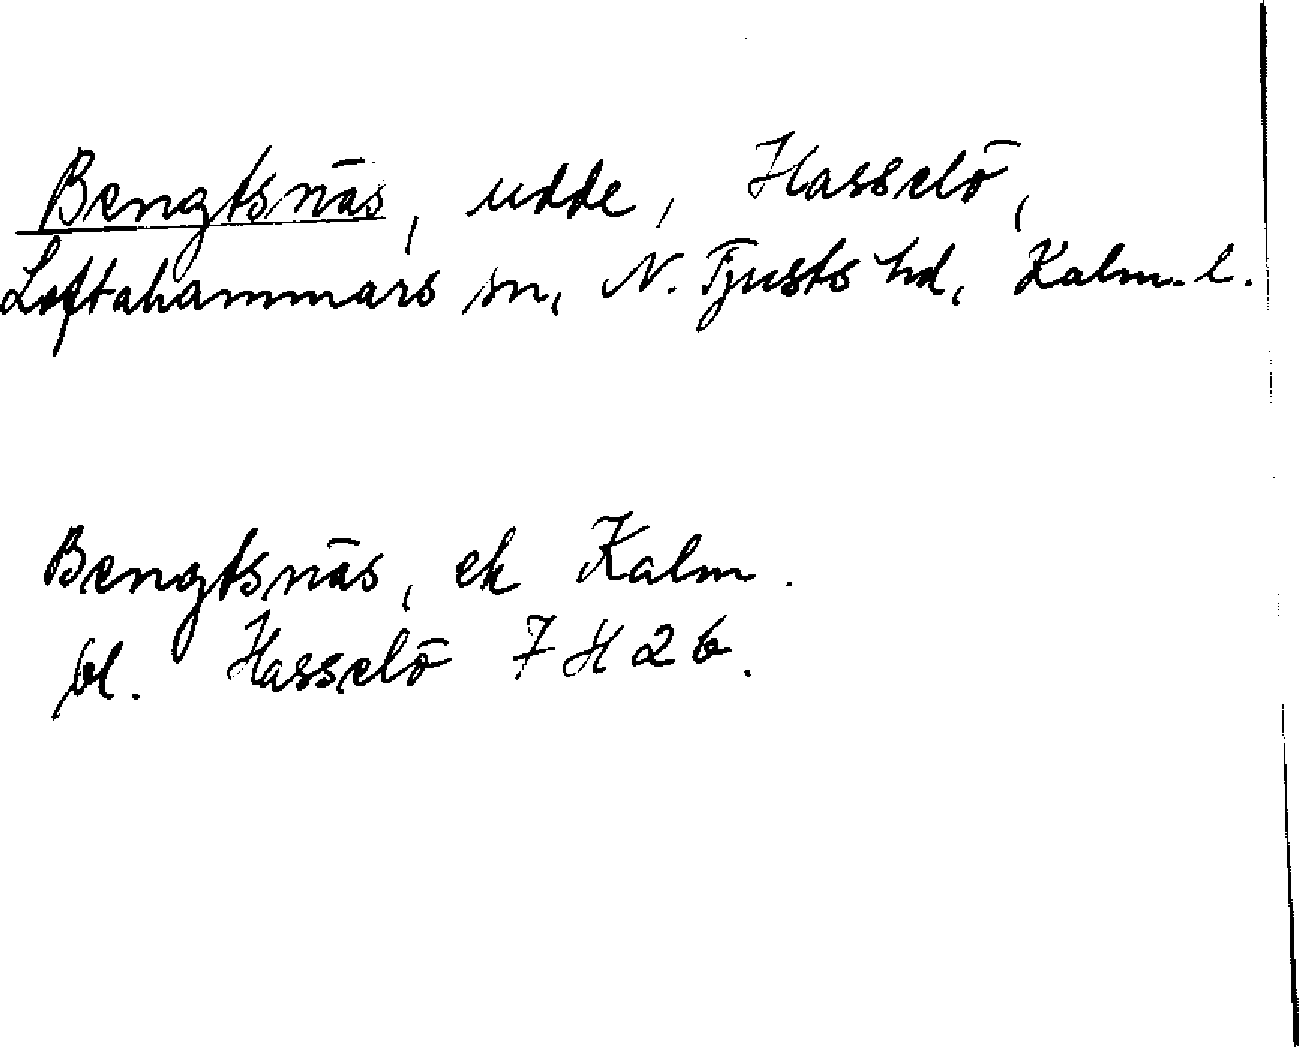 Bengtsnäs, udde, Hasselö,
Loftahammars sn, N. Tjusts hd, Kalm. l.
Bengtsnäs, ek Kalm.
bl. Hasselö 7 H 2 b.